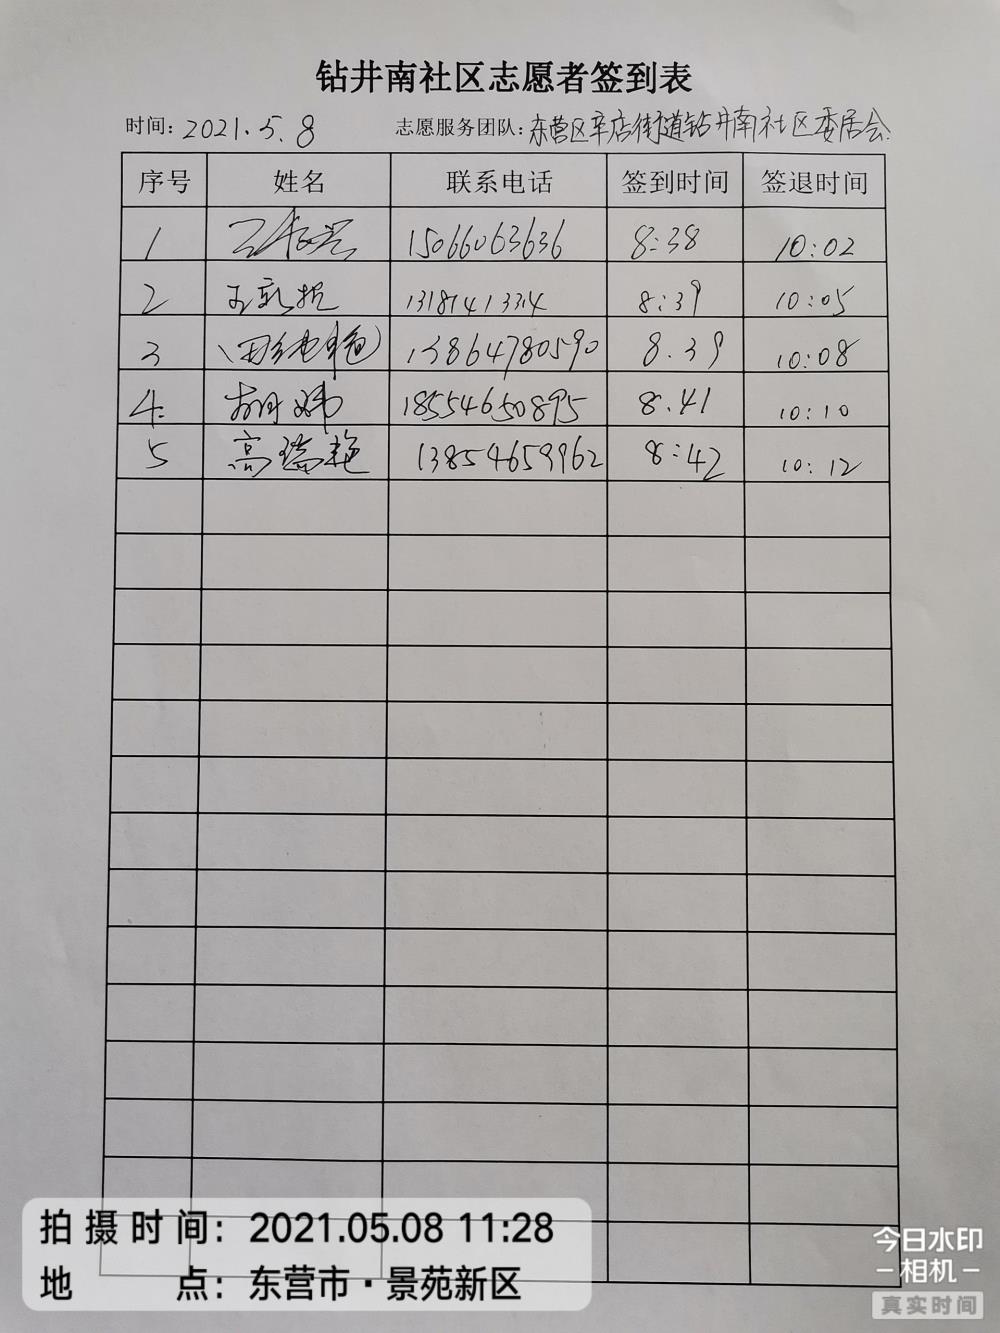 钻井南社区志愿者签到表
时间：2021.5.8 志愿服务团队：东营区辛店街道钻井南社区委居会
序号 姓名 联系电话 签到时间 签退时间
1 15066063636 8:38 10:02
2 8:39 10:05
3 13864780590 8.39 10:08
4. 18554650895 8.41 10:10
5 高瑞艳 13854659962 8:42 10:12
拍摄时间：2021.05.08 11:28
地点：东营市·景苑新区
今日水印
-相机-
真实时间